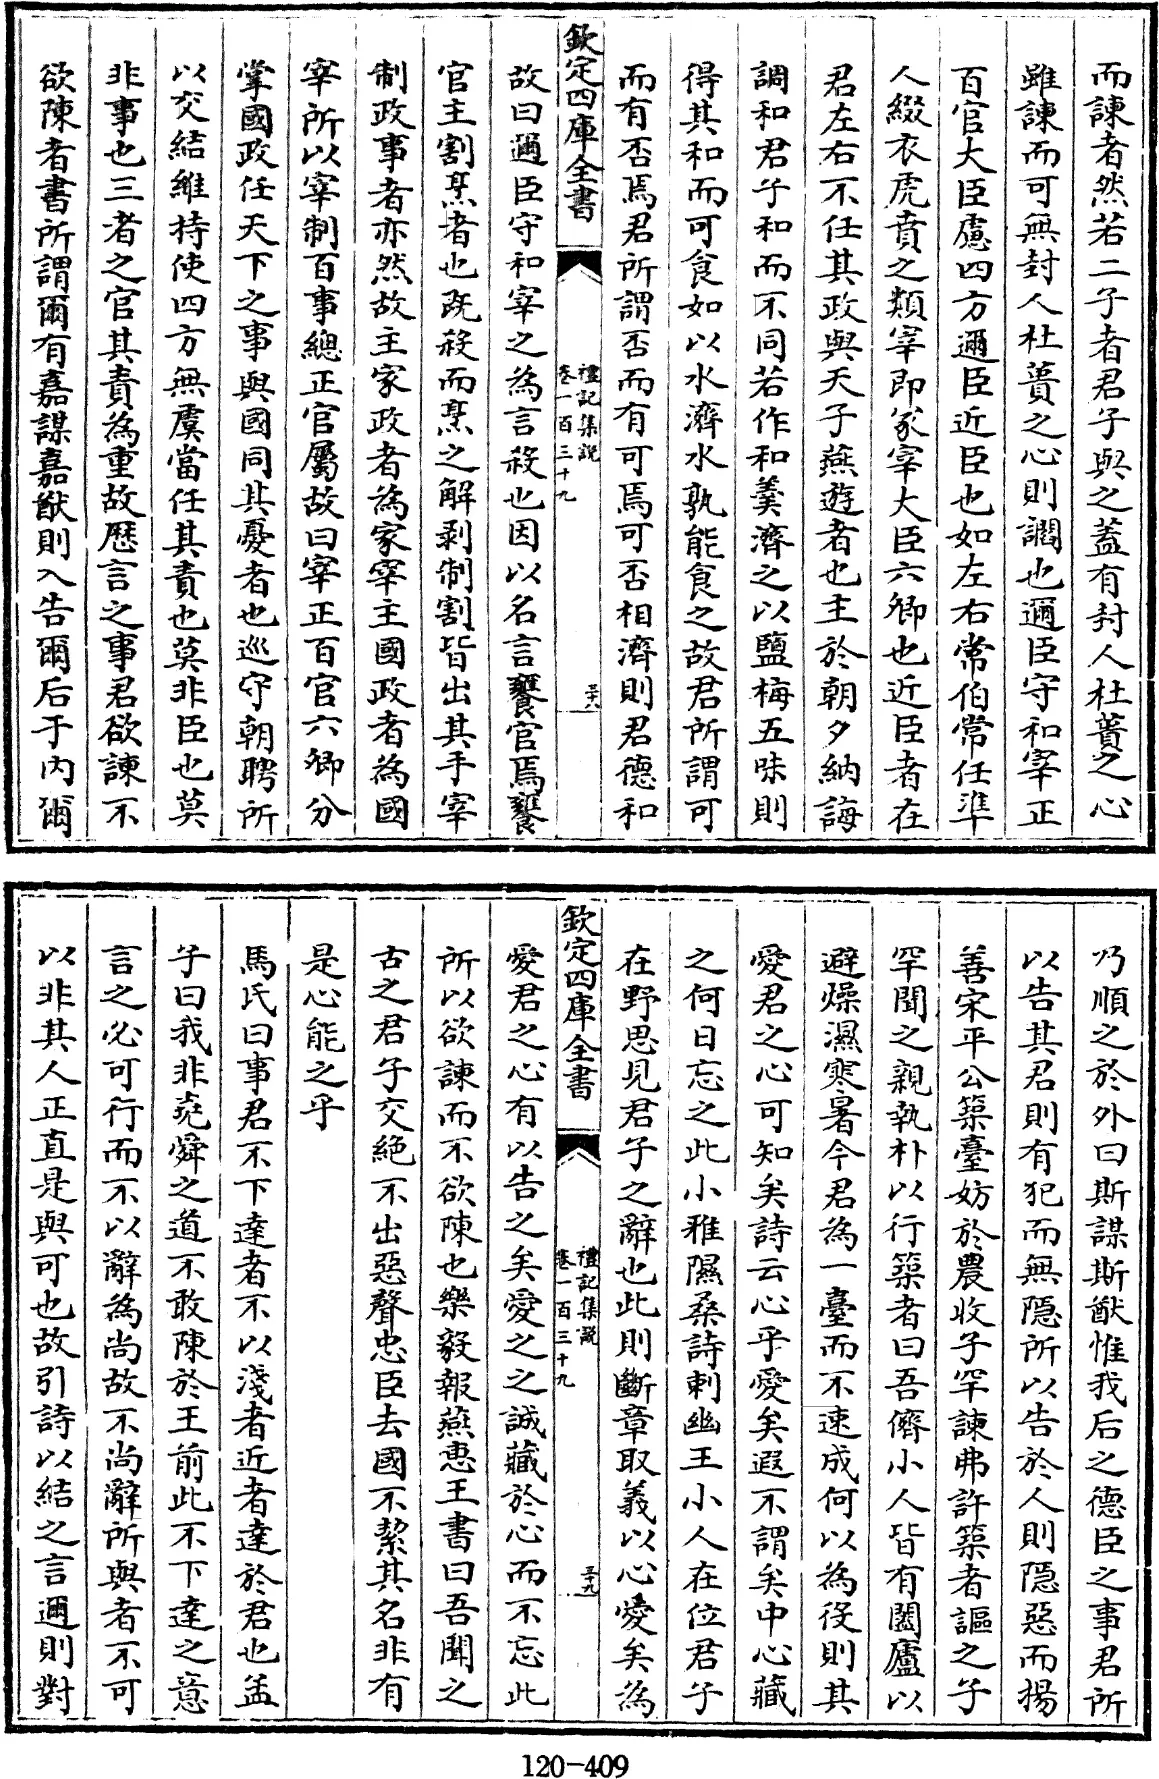 而諫者然若二子者君子與之蓋有封人杜蕢之心
雖諫而可無封人杜蕢之心則讇也邇臣守和宰正
百官大臣慮四方邇臣近臣也如左右常伯常任準
人綴衣虎賁之類宰即冢宰大臣六卿也近臣者在
君左右不任其政與天子燕遊者也主於朝夕納誨
調和君子和而不同若作和羹濟之以鹽梅五味則
得其和而可食如以水濟水孰能食之故君所謂可
而有否焉君所謂否而有可焉可否相濟則君德和
欽定四庫全書
禮記集說
卷一百三十九
三十八
故曰邇臣守和宰之為言殺也因以名言饔官焉饔
官主割烹者也既殺而烹之解剥制割皆出其手宰
制政事者亦然故主家政者為家宰主國政者為國
宰所以宰制百事總正官屬故曰宰正百官六卿分
掌國政任天下之事與國同其憂者也巡守朝聘所
以交結維持使四方無虞當任其責也莫非臣也莫
非事也三者之官其責為重故歷言之事君欲諫不
欲陳者書所謂爾有嘉謀嘉猷則入告爾后于内爾
乃順之於外曰斯謀斯猷惟我后之德臣之事君所
以告其君則有犯而無隠所以告於人則隠惡而揚
善宋平公築臺妨於農收子罕諫弗許築者謳之子
罕聞之親執朴以行築者曰吾儕小人皆有闔廬以
避燥濕寒暑今君為一臺而不速成何以為役則其
愛君之心可知矣詩云心乎愛矣遐不謂矣中心藏
之何日忘之此小雅隰桑詩刺幽王小人在位君子
在野思見君子之辭也此則斷章取義以心愛矣為
欽定四庫全書
禮記集說
卷一百三十九
三十九
愛君之心有以告之矣愛之之誠藏於心而不忘此
所以欲諫而不欲陳也樂毅報燕惠王書曰吾聞之
古之君子交絶不出惡聲忠臣去國不絜其名非有
是心能之乎
馬氏曰事君不下達者不以淺者近者達於君也孟
子曰我非堯舜之道不敢陳於王前此不下達之意
言之必可行而不以辭為尚故不尚辭所與者不可
以非其人正直是與可也故引詩以結之言邇則對
120-409